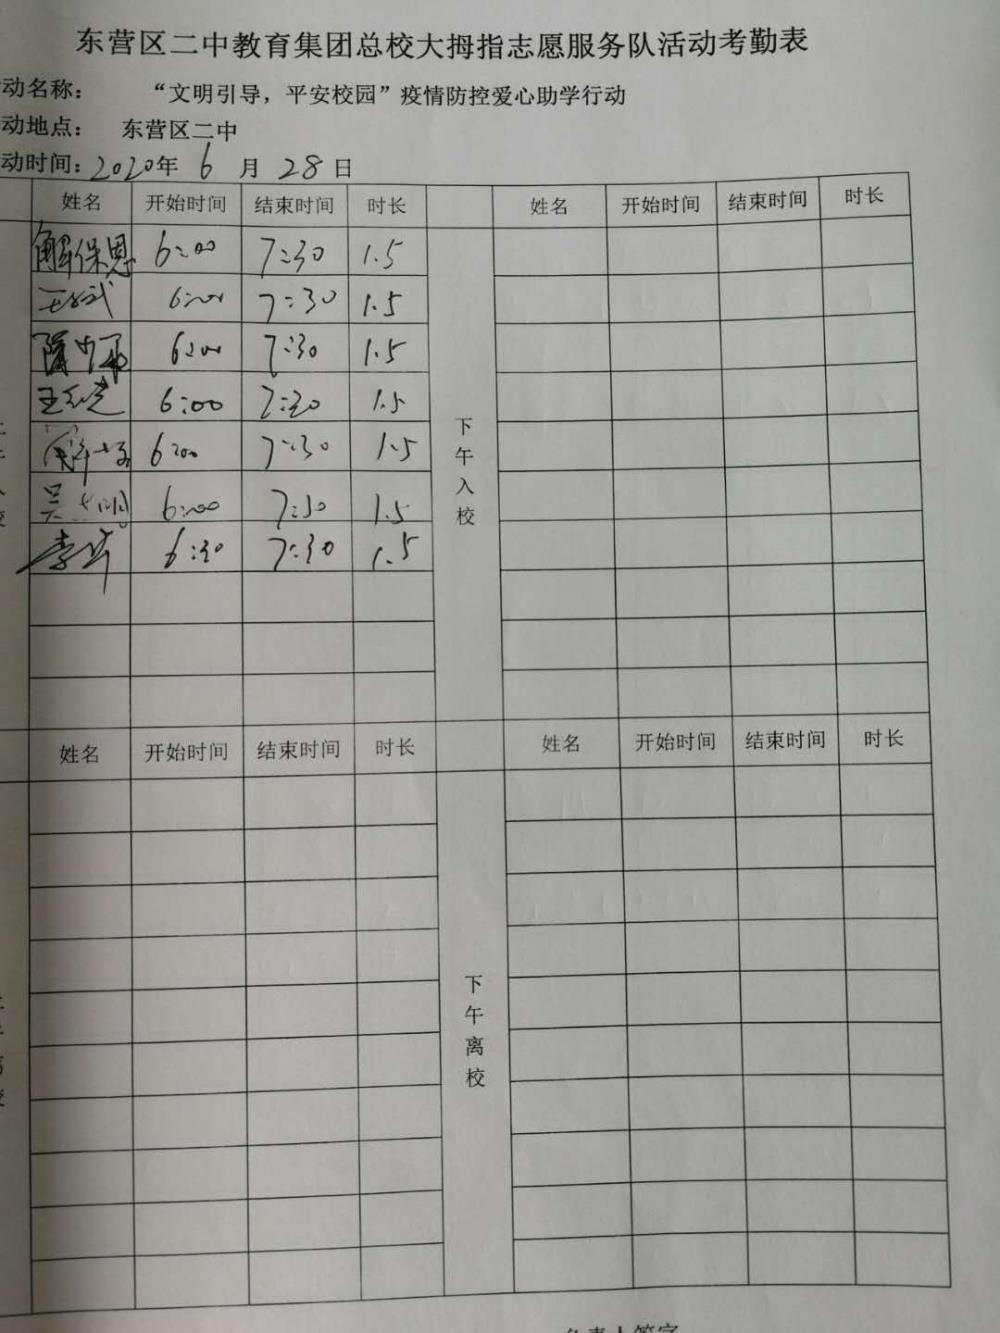 东营区二中教育集团总校大拇指志愿服务队活动考勤表
动名称： “文明引导，平安校园”疫情防控爱心助学行动
动地点： 东营区二中
动时间：2020年 6 月 28 日
姓名 开始时间 结束时间 时长 姓名 开始时间 结束时间 时长
解保恩 6:00 7:30 1.5
6:00 7:30 1.5
6:00 7:30 1.5
6:00 7:30 1.5
6:00 7:30 1.5
6:00 7:30 1.5
6:30 7:30 1.5
下午入校
姓名 开始时间 结束时间 时长 姓名 开始时间 结束时间 时长
下午离校